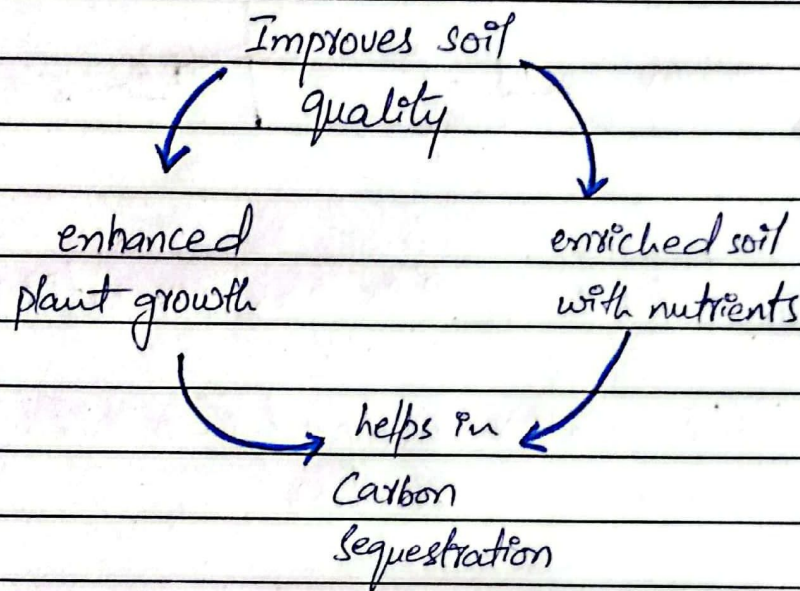 Improves soil
quality
enhanced
plant growth
enriched soil
with nutrients
helps in
Carbon
sequestration